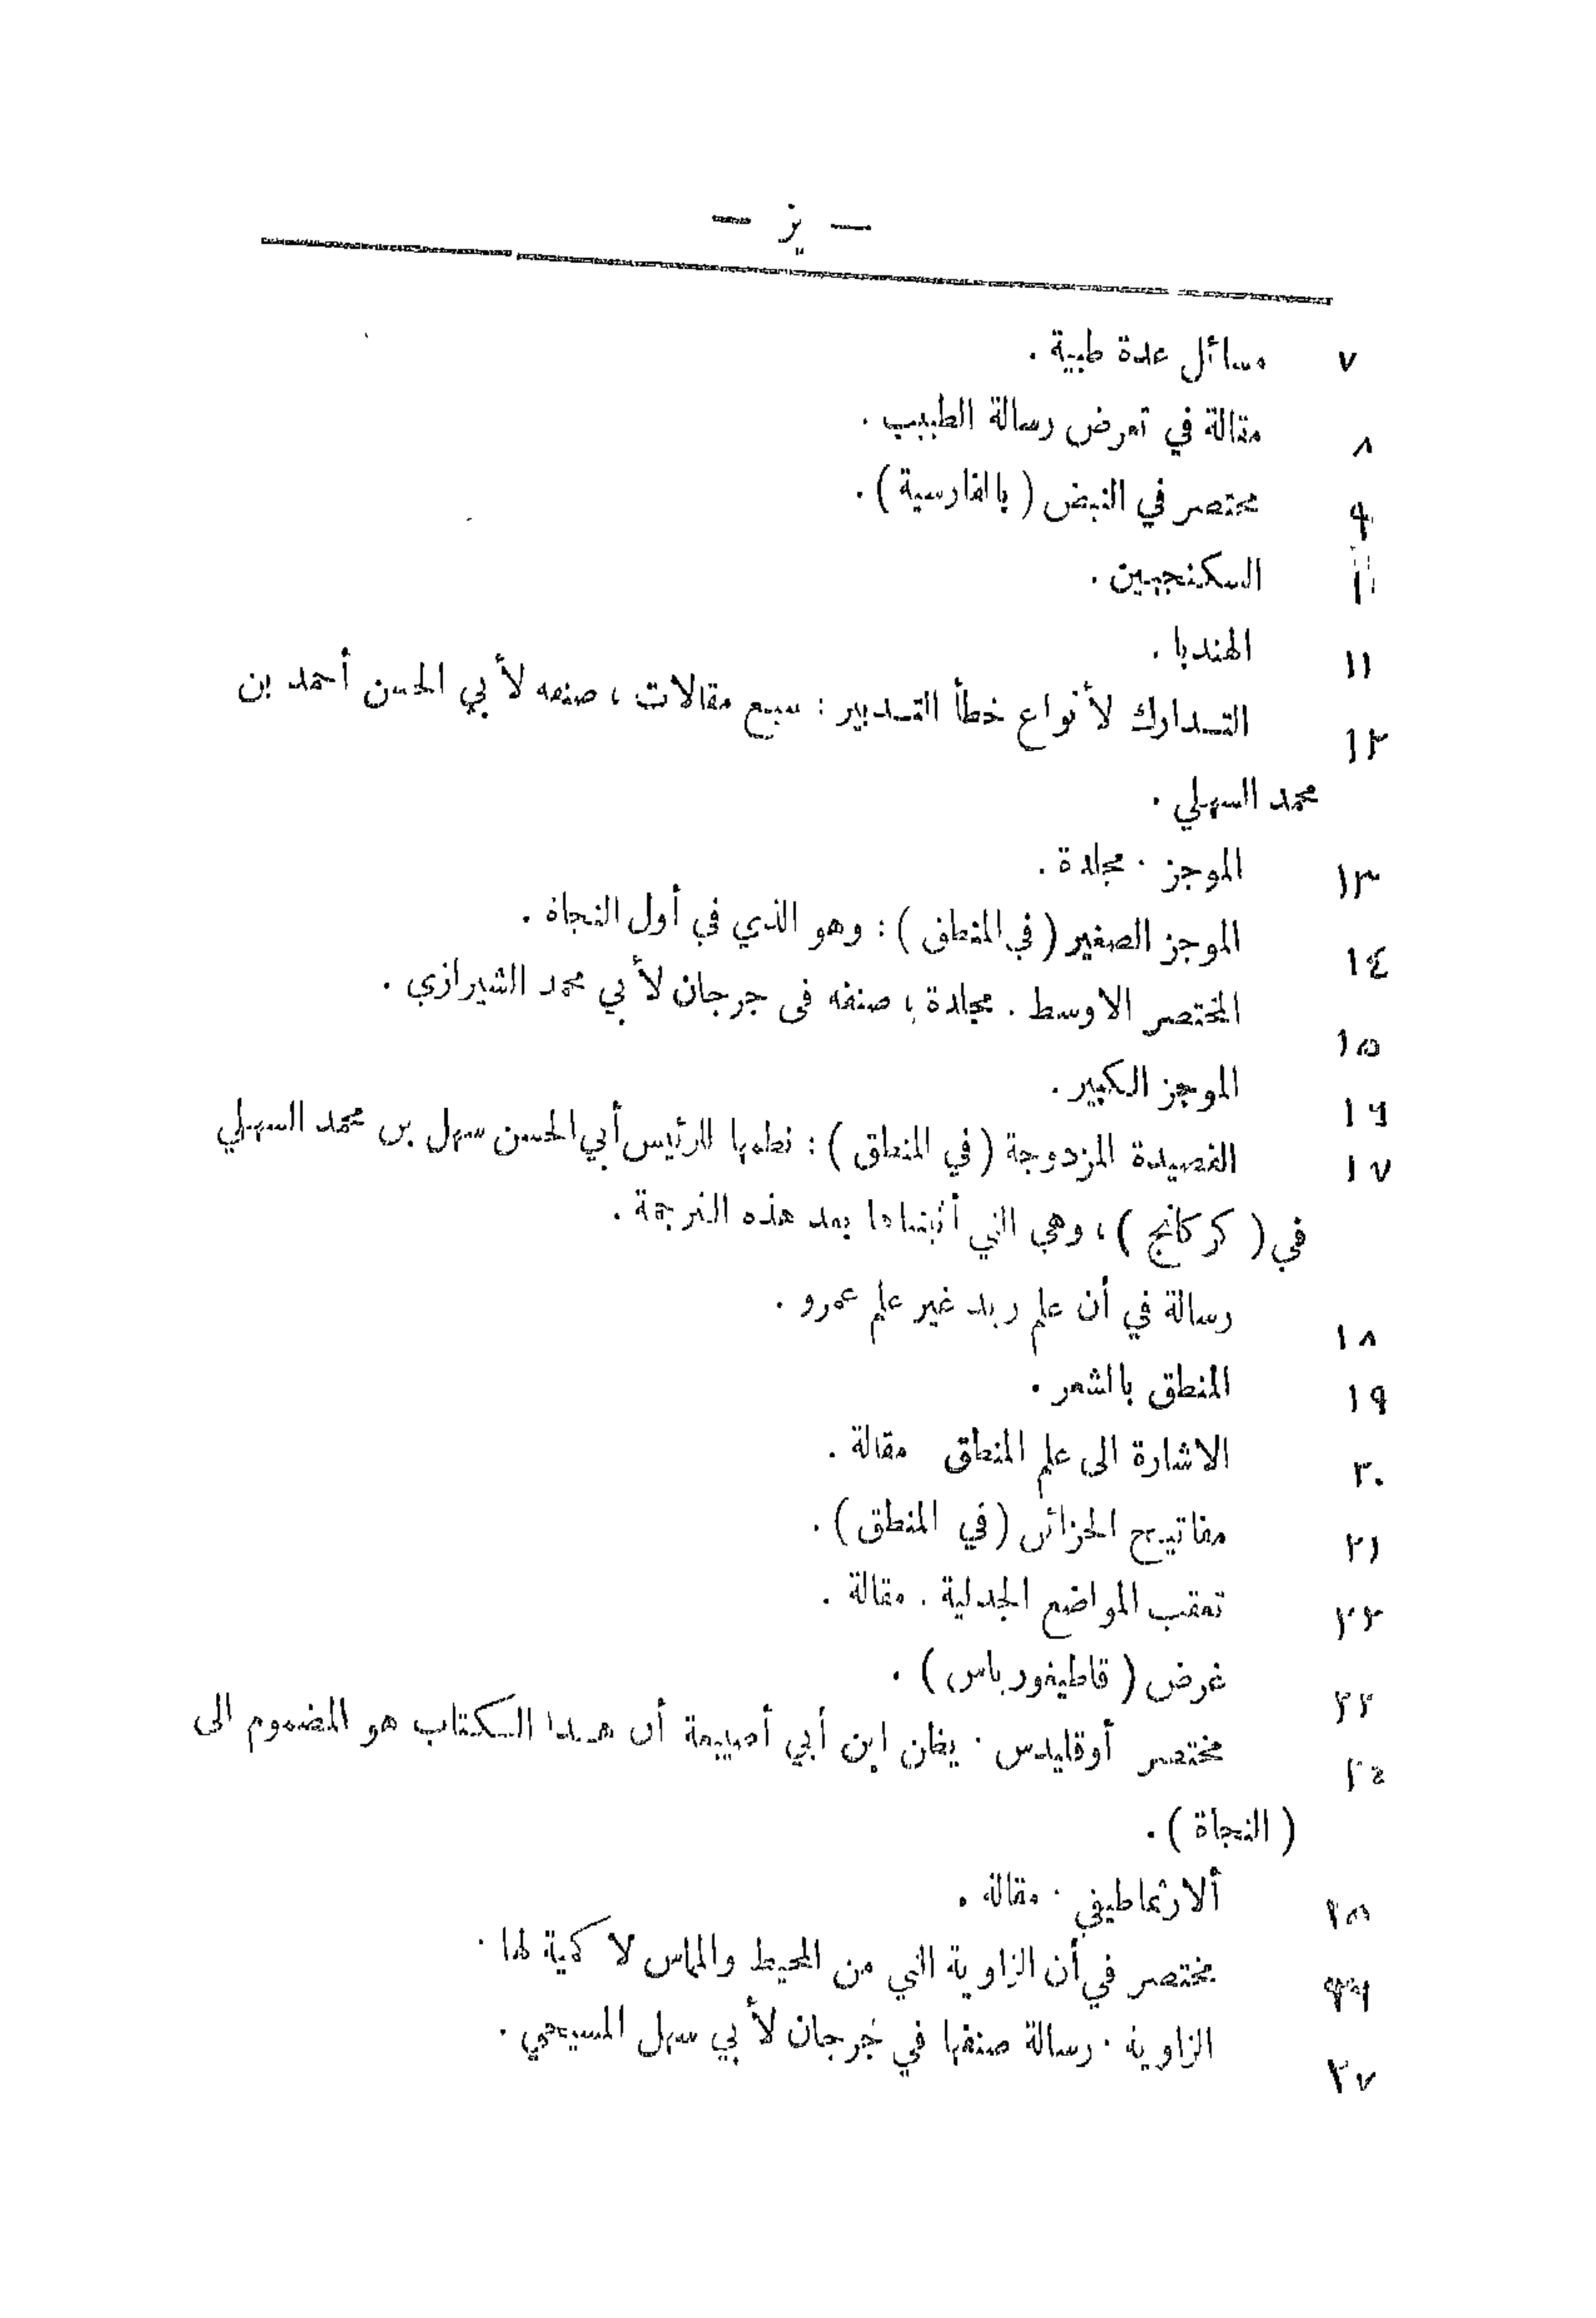 — يز —
٧ مسائل عدة طبية .
٨ مقالة في تعرض رسالة الطبيب .
٩ مختصر في النبض ( بالفارسية ) .
السكنجبين .
١١ الهندبا .
١٢ التدارك لأنواع خطأ التدبير : سبع مقالات ، صنعه لأبي الحسن أحمد بن
محمد السهلي .
١٣ الموجز . مجلدة .
١٤ الموجز الصغير ( في المنطق ) : وهو الذي في أول النجاة .
١٥ المختصر الاوسط . مجلدة ، صنفه في جرجان لأبي محمد الشيرازي .
١٦ الموجز الكبير .
١٧ القصيدة المزدوجة ( في المنطق ) : نظمها للرئيس أبي الحسن سهل بن محمد السهلي
في ( كركانج ) ، وهي التي أثبتناها بعد هذه الترجمة .
١٨ رسالة في أن علم زيد غير علم عمرو .
١٩ المنطق بالشعر .
٢٠ الاشارة الى علم المنطق مقالة .
٢١ مفاتيح الخزائن ( في المنطق ) .
٢٢ تعقب المواضع الجدلية . مقالة .
٢٣ غرض ( قاطيغورياس ) .
٢٤ مختصر أوقليدس . يظن ابن أبي أصيبعة أن هذا الكتاب هو المضموم الى
( النجاة ) .
٢٥ ألارثماطيقي . مقالة .
٢٦ مختصر في أن الزاوية التي من المحيط والمماس لا كمية لها .
٢٧ الزاوية . رسالة صنفها في جرجان لأبي سهل المسيحي .